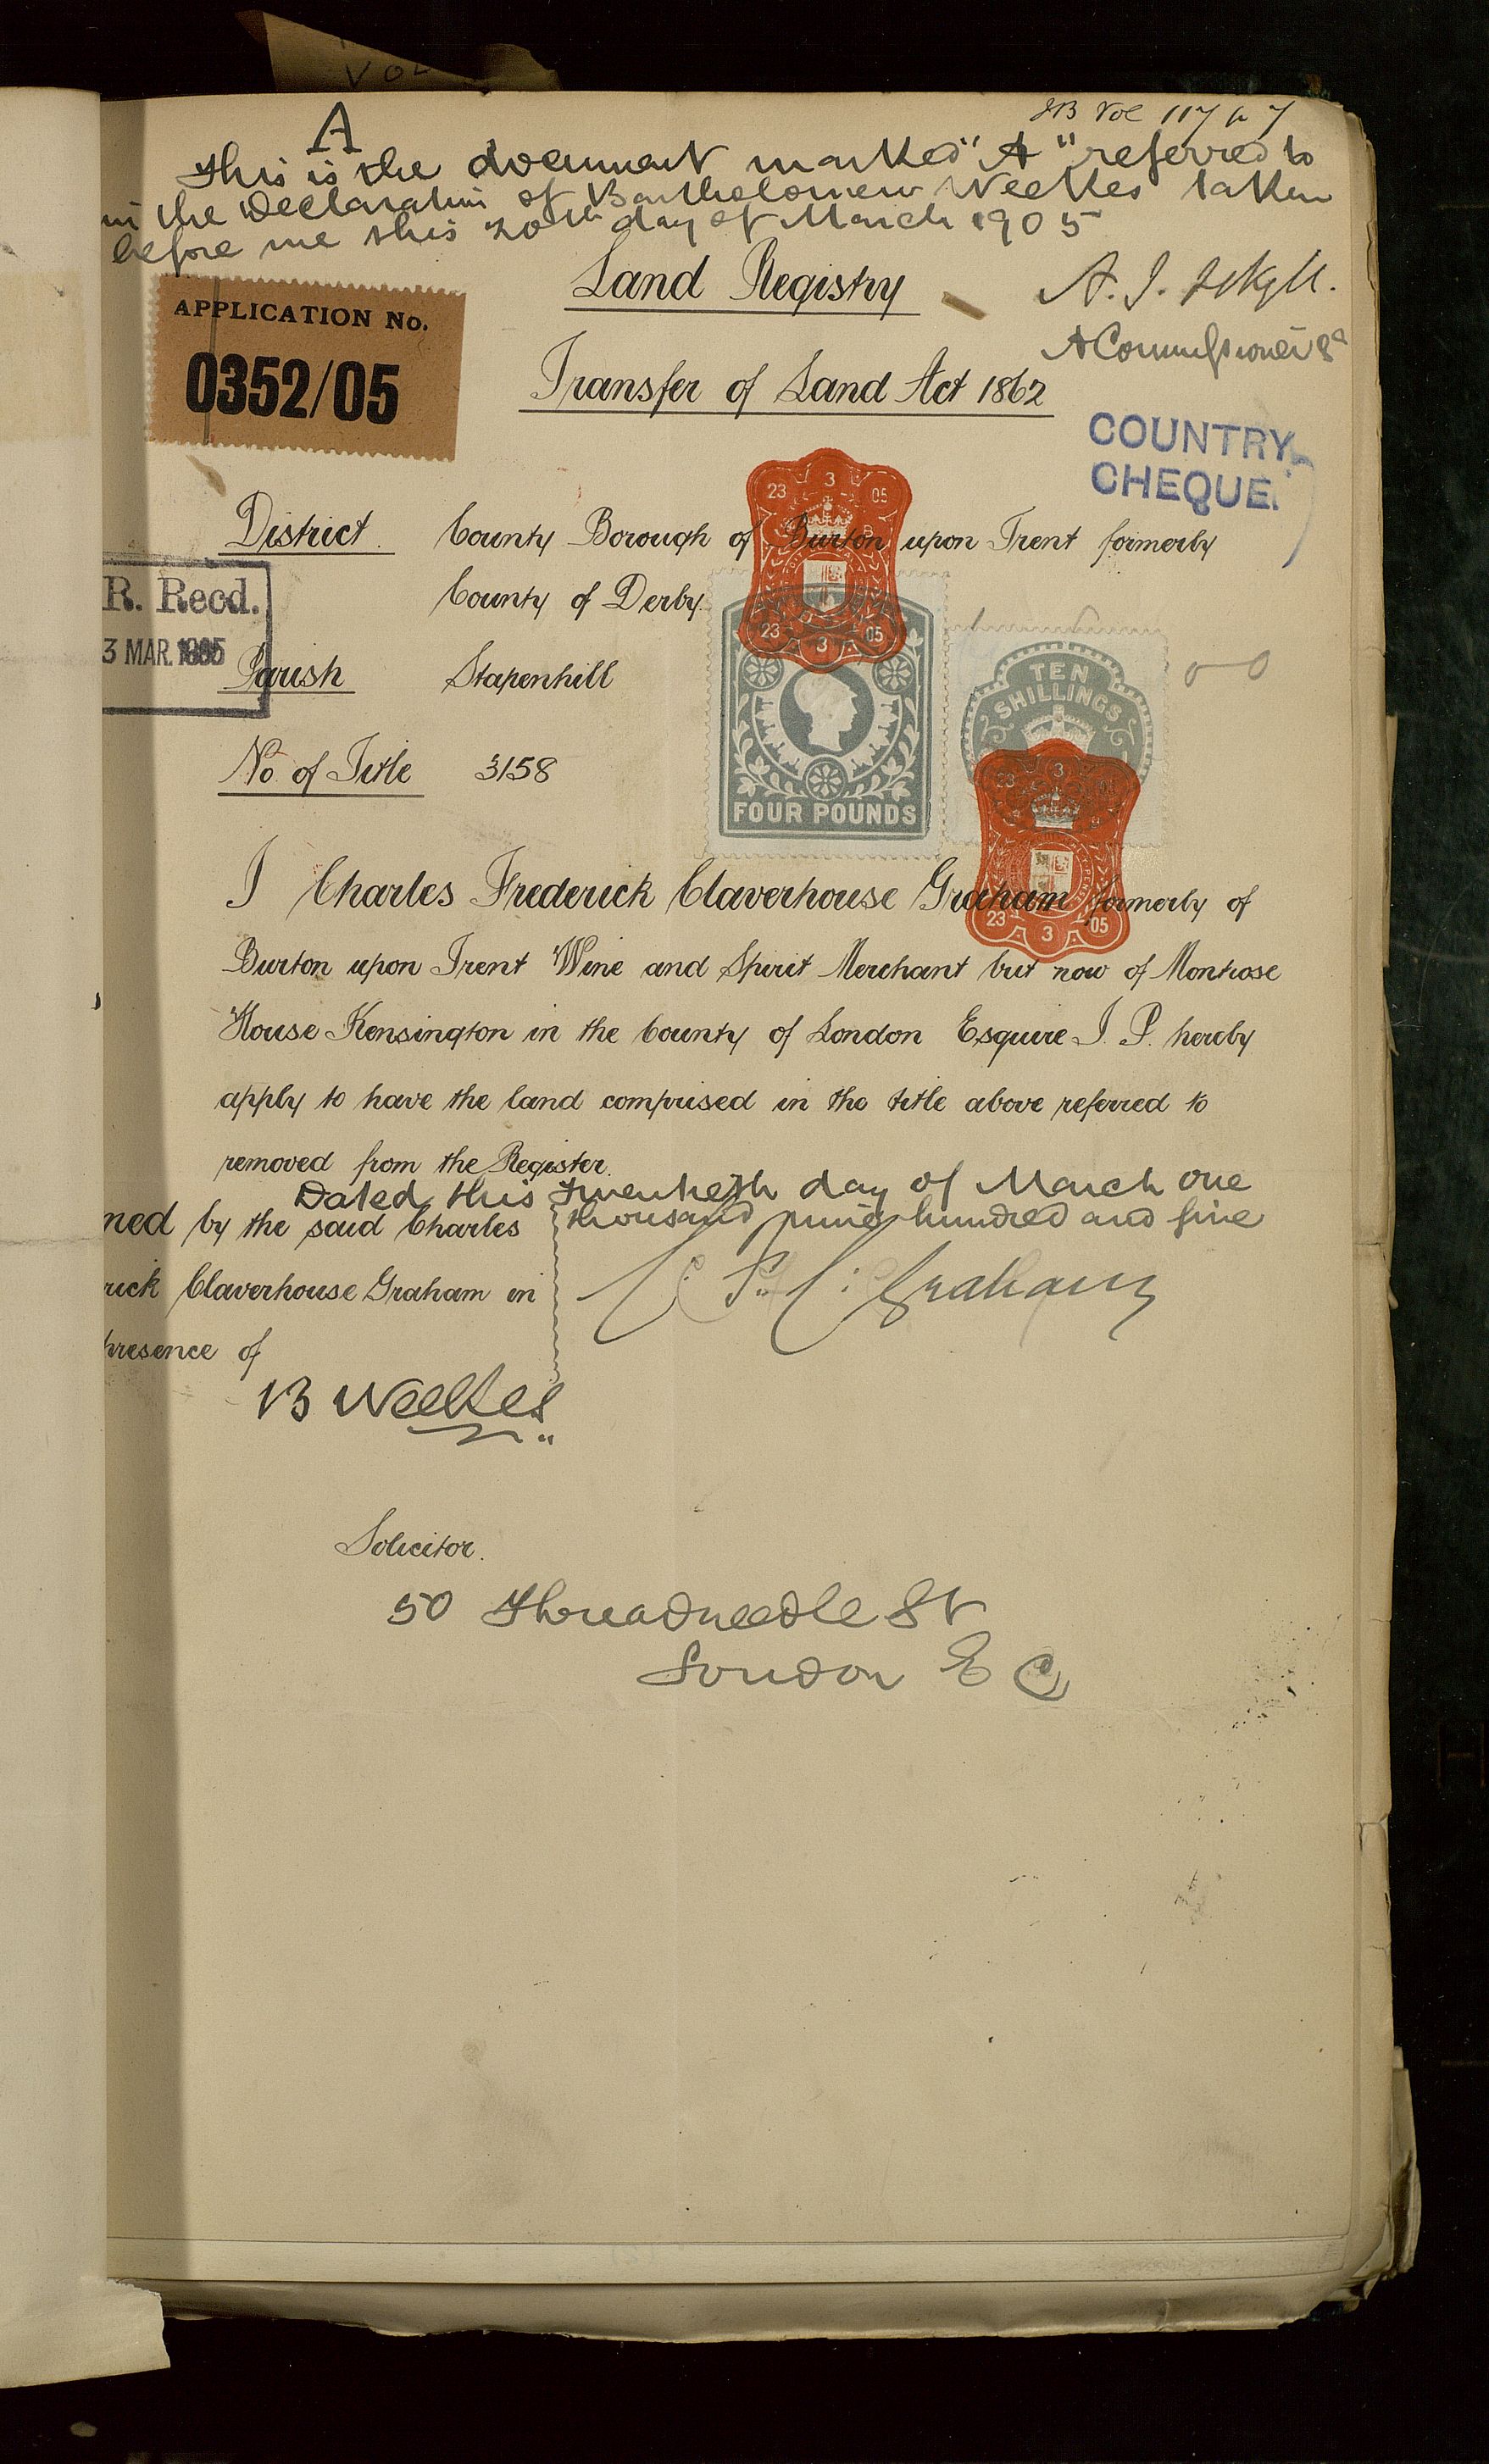 VOL
JB Vol 117 p 7
A
This is the document marked "A" referred to
in the Declaration of Bartholomew Weekes taken
before me this 20th day of March 1905
Land Registry
A. J.
A Commissioner &c
APPLICATION No.
0352/05
Transfer of Land Act 1862
COUNTRY
CHEQUE.
23 3 05
District. County Borough of Burton upon Trent formerly
County of Derby.
R. Recd.
3 MAR. 1905
23 3 05
Parish Stapenhill
TEN
SHILLINGS
No. of Title 3158
23 3
FOUR POUNDS
I Charles Frederick Claverhouse Graham formerly of
23 3 05
Burton upon Trent Wine and Spirit Merchant but now of Montrose
House Kensington in the County of London Esquire J. P. hereby
apply to have the land comprised in the title above referred to
removed from the Register.
Dated this twentieth day of March one
thousand nine hundred and five
ned by the said Charles
rick Claverhouse Graham in
presence of
C. F. C. Graham
B Weekes
Solicitor.
50 Threadneedle St
London E C